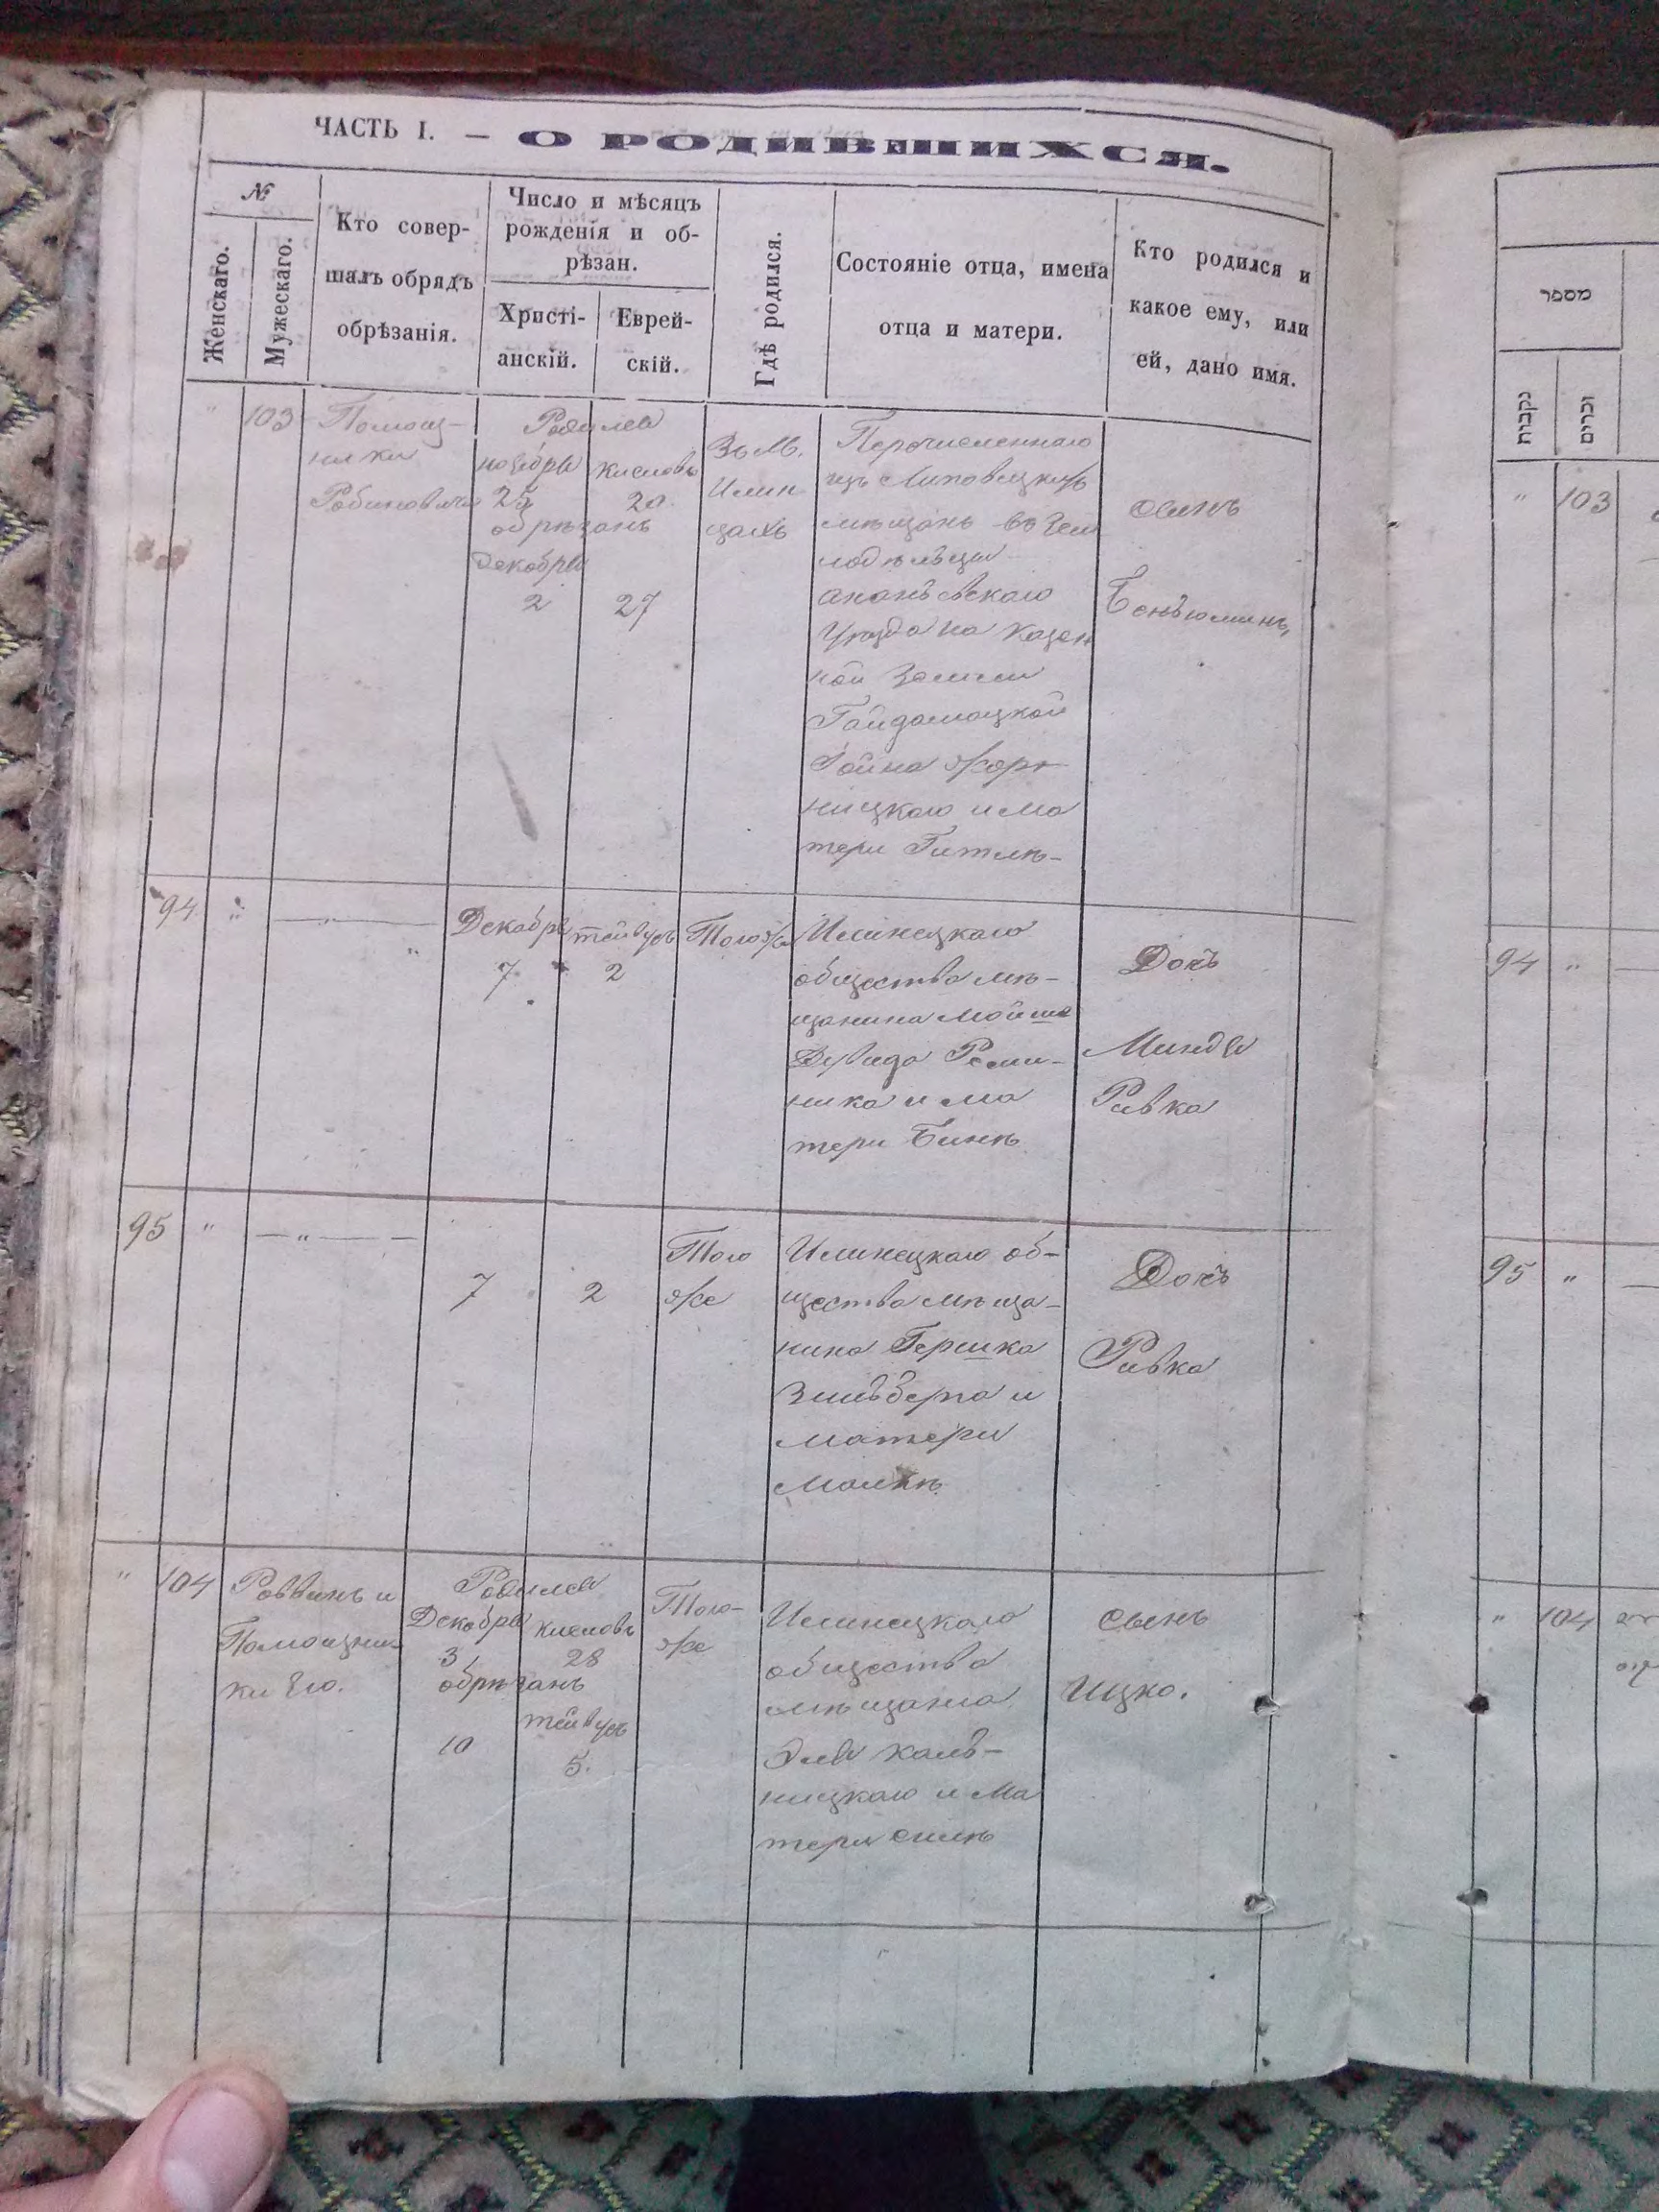 ЧАСТЬ I. — О РОДИВШИХСЯ.
№
Женскаго.
Мужескаго.
Кто совер-
шалъ обрядъ
обрѣзанія.
Число и мѣсяцъ
рожденія и об-
рѣзан.
Христі-
анскій.
Еврей-
скій.
Гдѣ родился.
Состояніе отца, имена
отца и матери.
Кто родился и
какое ему, или
ей, дано имя.
" 103
Помощ-
ника
Рабиновича
Родился
ноября
25
обрѣзанъ
Декабря
2
кисловъ
20.
27
Въ м.
Илин
цахъ
Перечисленнаго
изъ Липовецкихъ
мѣщанъ въ Зем
лодѣльцы
ананьевскаго
Уѣзда на казен
ной земли
Гайдамацкой
ницкаго и ма
тери Гитлѣ-
сынъ
Беньюминъ,
94 "
— " —
Декабря
7
тейвусъ
2
Тогоже
Илинецкаго
общества мѣ-
щанина Мойша
Дувида
ника и ма
тери Бинѣ
Дочь
Миндя
Ривка
95 "
— " — —
7
2
Того
же
Илинецкаго об-
щества мѣща-
нина Гершка
Зильберга и
матери
Малкѣ
Дочь
Ривка
" 104
Раввинъ и
Помощни-
ки Его.
Родился
Декабря
3
обрѣзанъ
10
кисловъ
28
тейвусъ
5.
Того-
же
Илинецкаго
общества
мѣщана
Эля Каль-
ницкаго и Ма
тери
сынъ
Ицко.
מספר
נקבות
זכרים
" 103
94 "
95 "
" 104